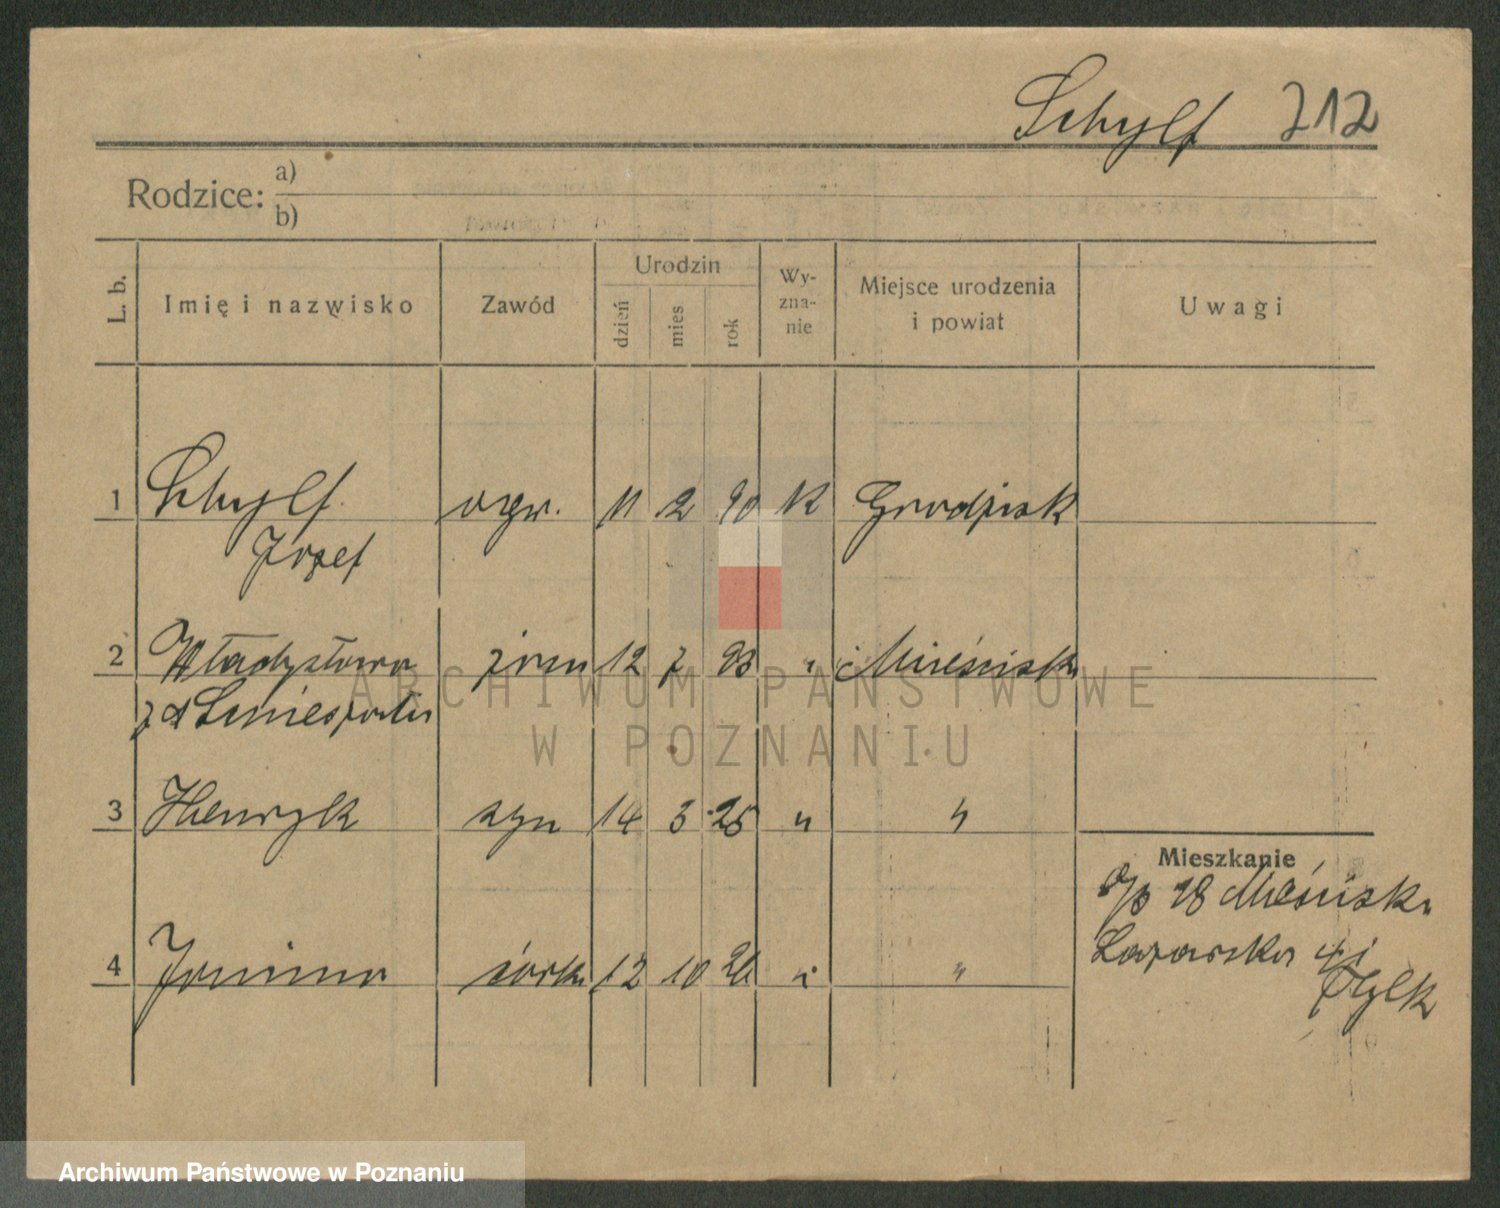 Schylf 212
Rodzice: a)
b)
L. b. Imię i nazwisko Zawód Urodzin dzień mies rok Wyznanie Miejsce urodzenia i powiat Uwagi
1 Schylf ogr. 11 2 90 K Grodzisk
Józef
2 Władysława żona 12 7 93 " Mieścisk
z d
3 Henryk syn 14 3 25 " "
Mieszkanie
4 Janina córka 12 10 26 " "
28 Mieścisk
Łazarska 4
ARCHIWUM PAŃSTWOWE
W POZNANIU
Archiwum Państwowe w Poznaniu